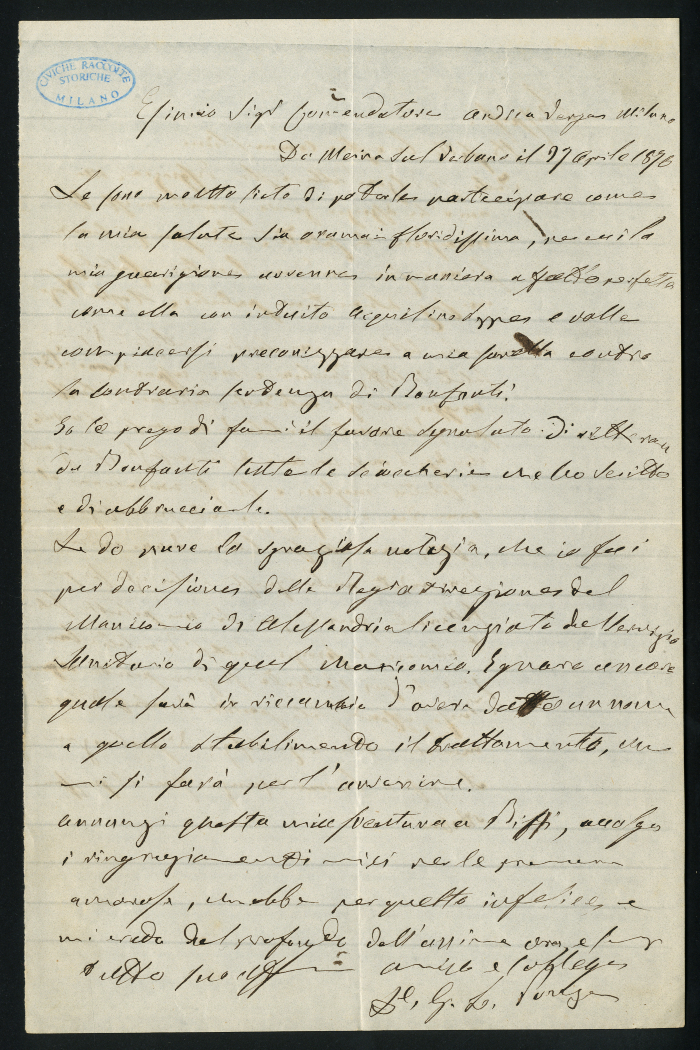 CIVICHE RACCOLTE
STORICHE
MILANO
Esimio Sigr Comendatore Andrea Verga Milano
Da Meina sul Verbano il 27 Aprile 1876
Le sono molto lieto di poterle partecipare come
la mia salute sia oramai floridissima, la
mia guarigione avvenne in maniera affatto perfetta
come ella con e volle
compiacersi preconizzare a mia sorella contro
la contraria sentenza di Bonfanti.
Io la prego di farmi il favore segnalato di
da Bonfanti tutte le scioccherie che ho scritto
e di abbrucciarle.
Le do pure la spiagiosa notizia, che io fui
per decisione della Regia Direzione del
Manicomio di Alessandria licenziato dal servizio
Sanitario di quel Manicomio. Ignaro ancora
quale sarà in ricambio d'avere dato un nome
a quello stabilimento il trattamento, che
mi si farà per l'avvenire.
annunzi questa mia sventura a Biffi, accolga
i ringraziamenti miei per le premure
amorose, che ebbe per questo infelice e
mi creda dal profondo dell'anima ora e sempre
tutto suo amico e collega
D. G. L. Ponza